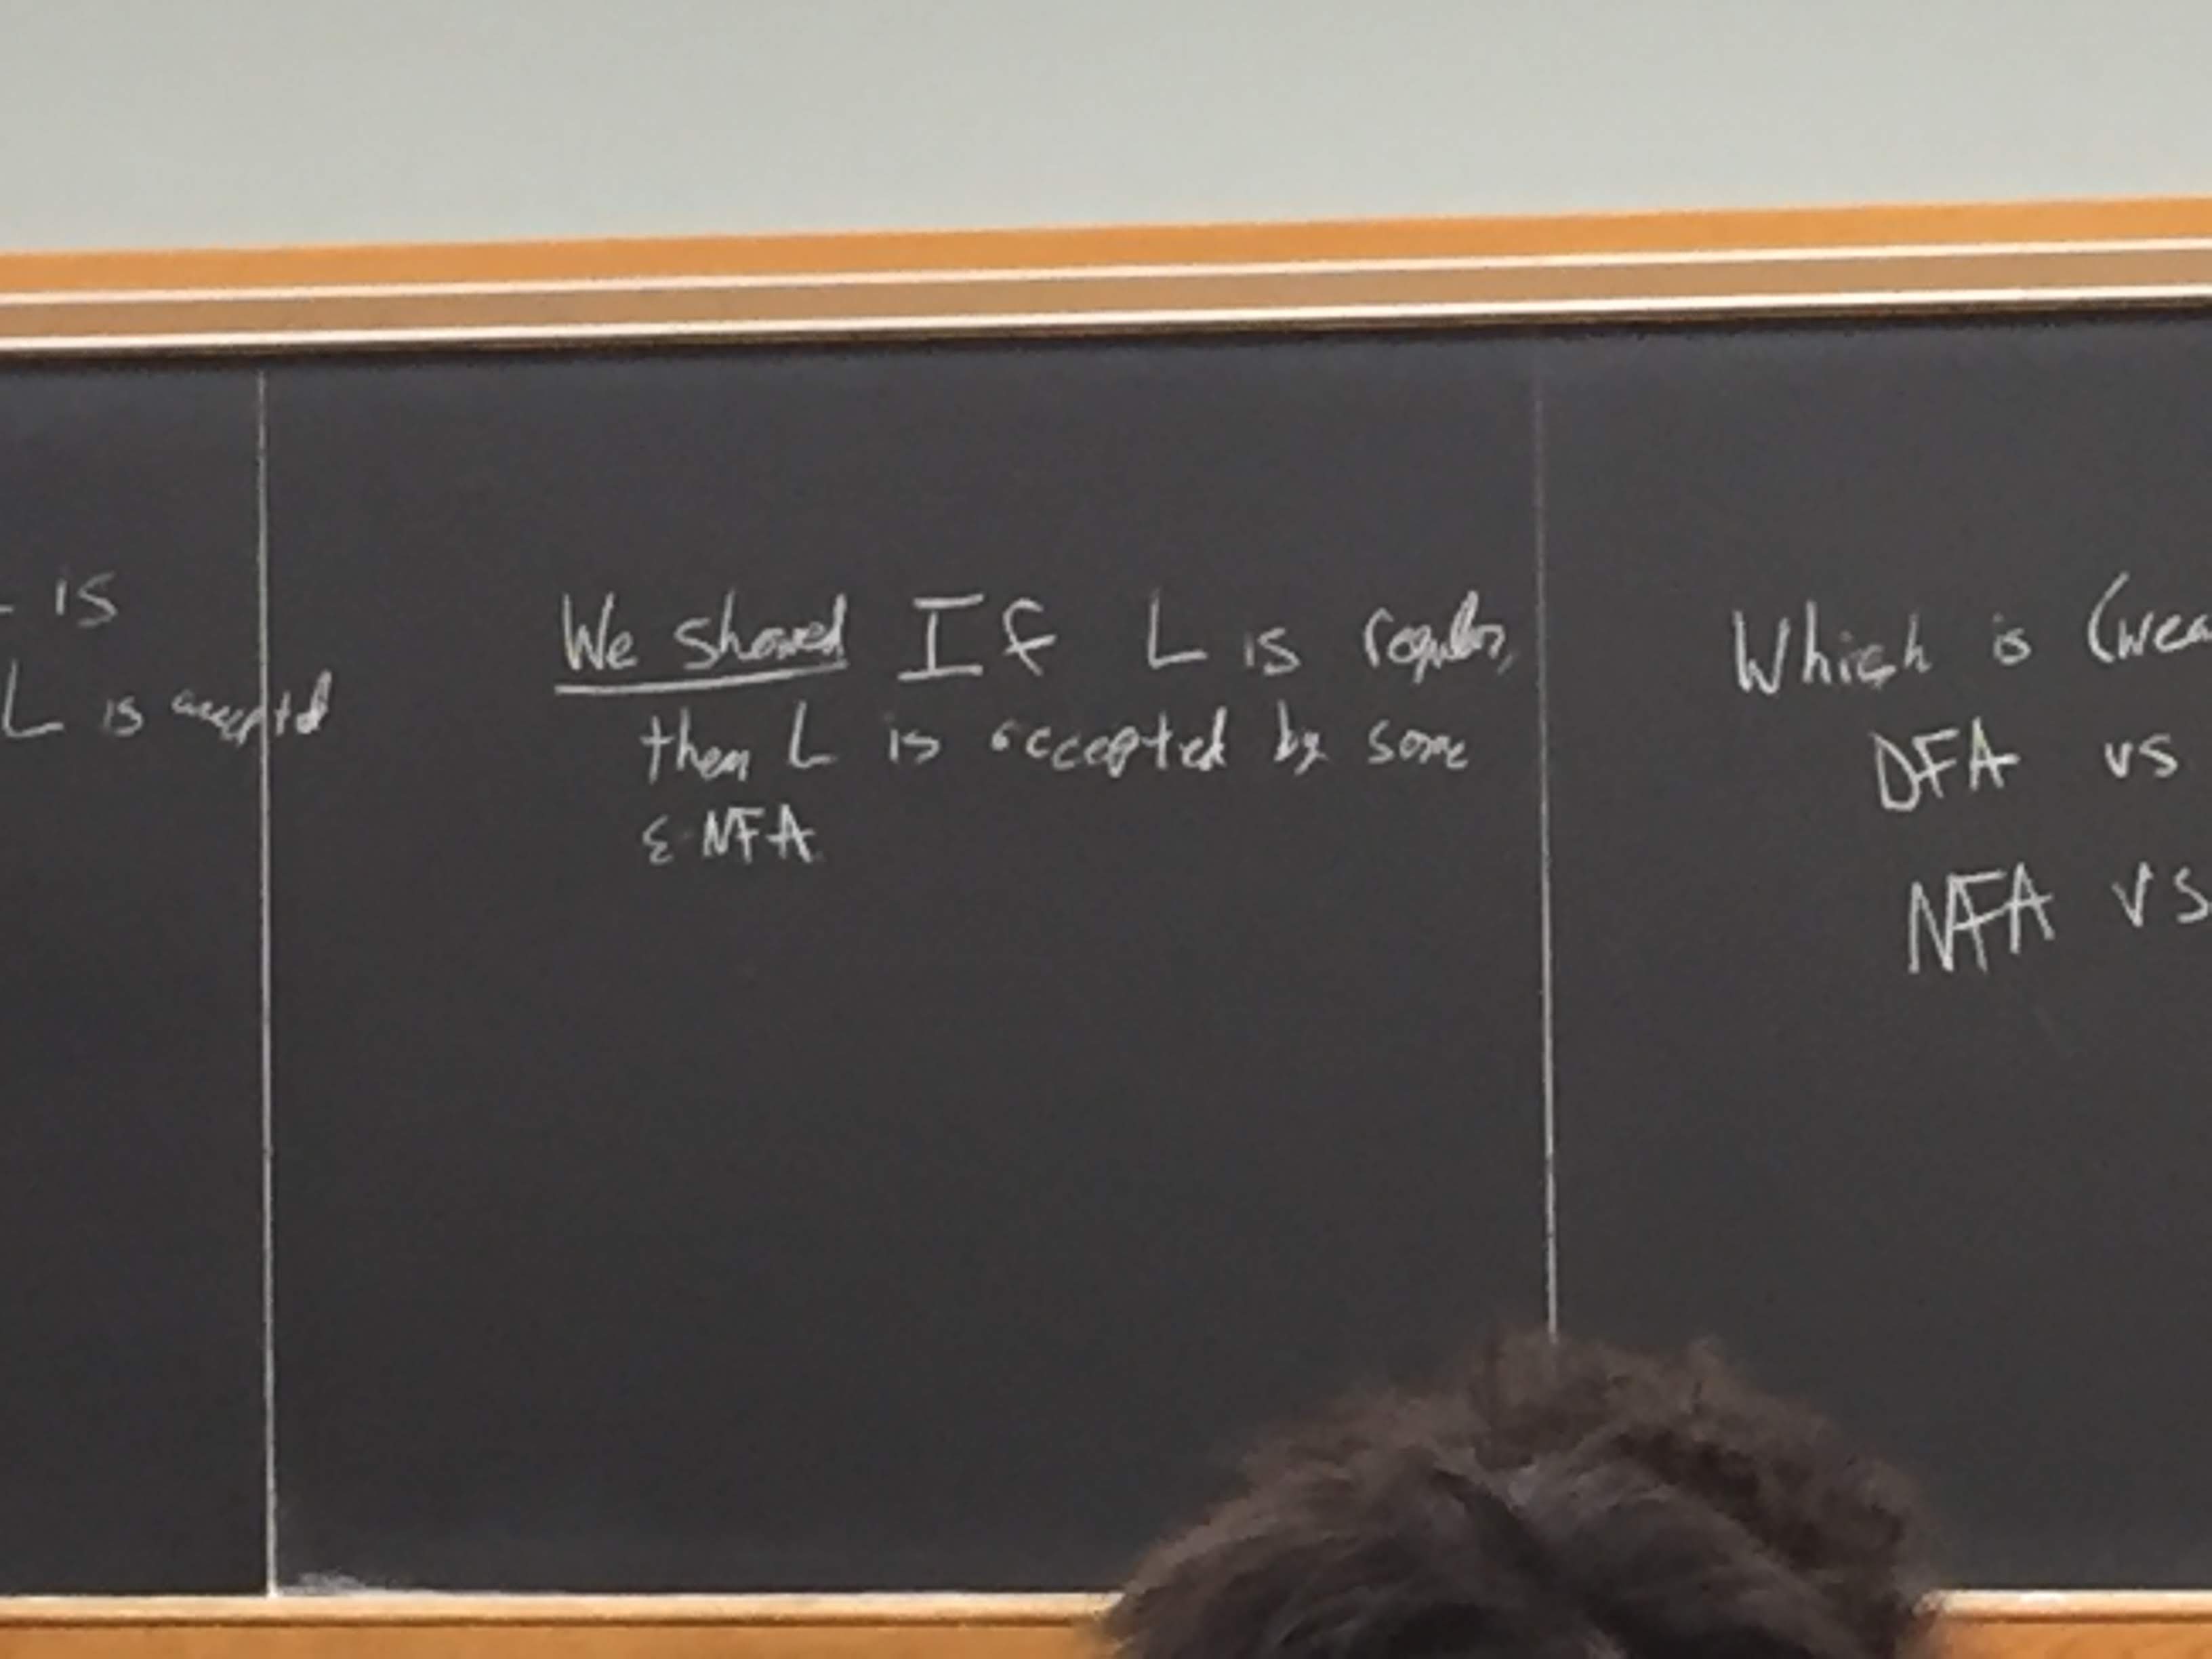 is
L is accepted
We showed If L is regular,
then L is accepted by some
ε-NFA
Which is (wea
DFA vs
NFA vs